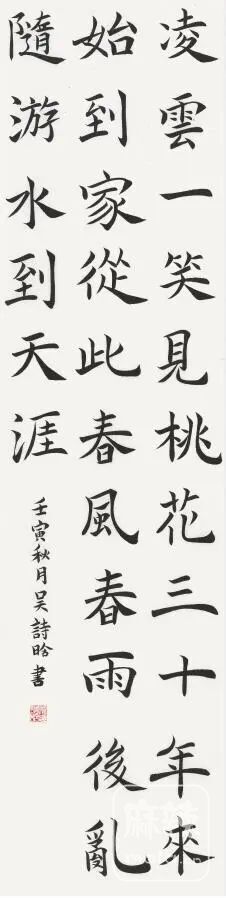 凌雲一笑見桃花三十年來
始到家從此春風春雨後亂
隨游水到天涯
壬寅秋月吳詩晗書
麻辣